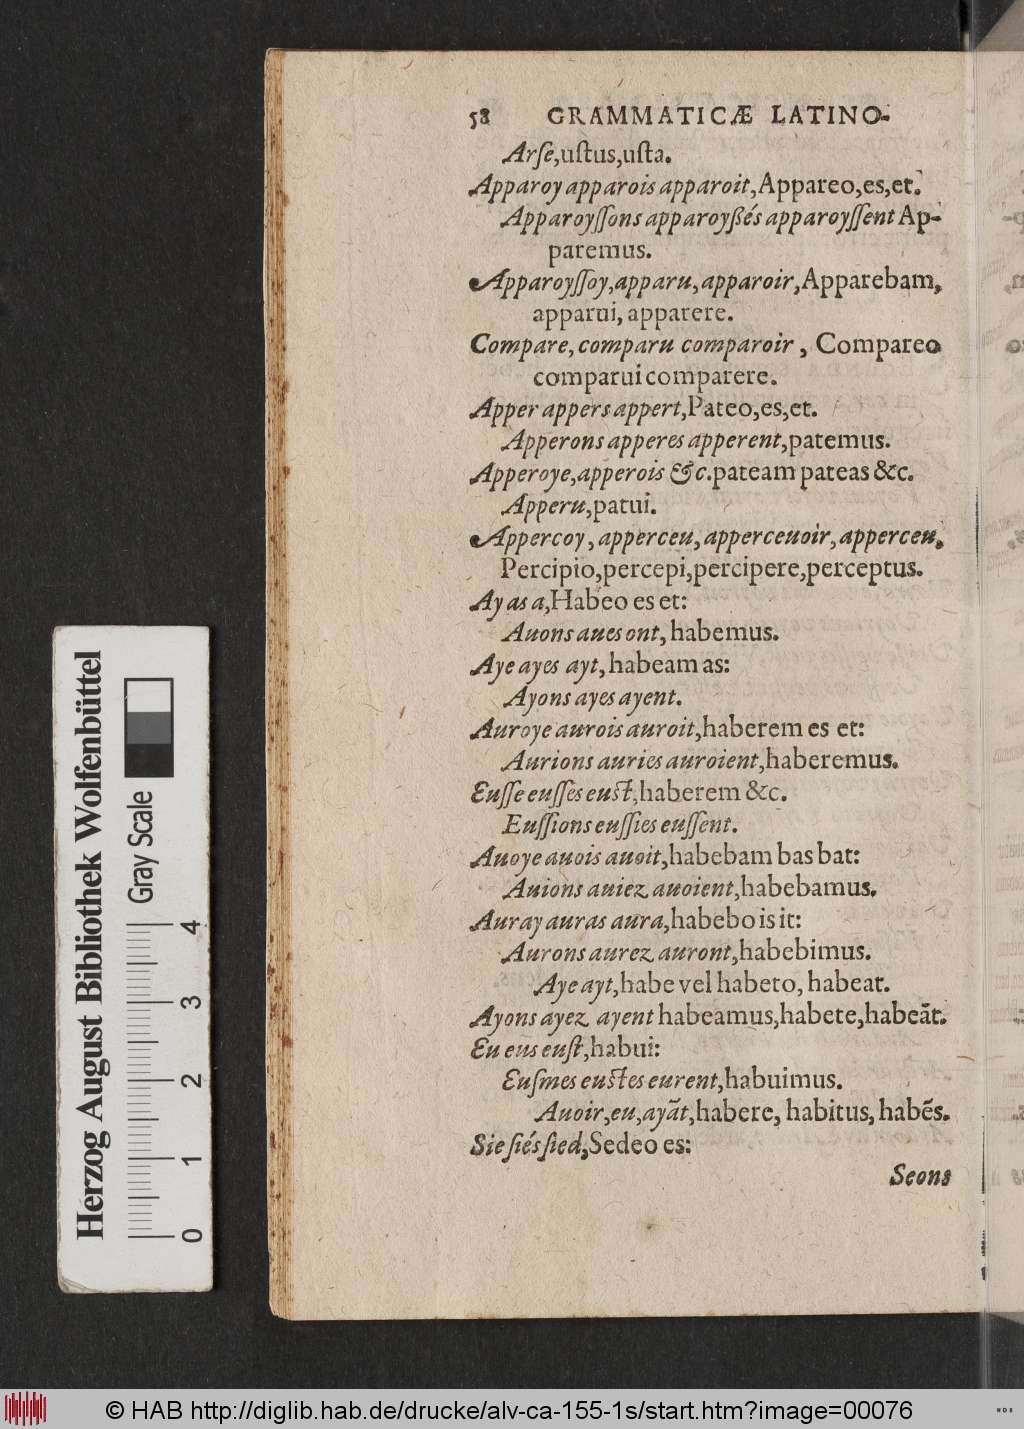 58 GRAMMATICÆ LATINO-
Arſe,uſtus,uſta.
Apparoy apparois apparoit,Appareo,es,et.
Apparoyſſons apparoyßés apparoyſſent Ap-
paremus.
Apparoyſſoy,apparu,apparoir,Apparebam,
apparui, apparere.
Compare,comparu comparoir, Compareo
comparui comparere.
Apper appers appert,Pateo,es,et.
Apperons apperes apperent,patemus.
Apperoye,apperois &c.pateam pateas &c.
Apperu,patui.
Appercoy, apperceu,apperceuoir,apperceu,
Percipio,percepi,percipere,perceptus.
Ay as a,Habeo es et:
Auons aues ont, habemus.
Aye ayes ayt, habeam as:
Ayons ayes ayent.
Auroye aurois auroit,haberem es et:
Aurions auries auroient,haberemus.
Euſſe euſſes euſt,haberem &c.
Euſſions euſſies euſſent.
Auoye auois auoit,habebam bas bat:
Auions auiez auoient,habebamus.
Auray auras aura,habebo is it:
Aurons aurez auront,habebimus.
Aye ayt,habe vel habeto, habeat.
Ayons ayez ayent habeamus,habete,habeāt.
Eu eus euſt,habui:
Euſmes euſtes eurent,habuimus.
Auoir,eu,ayāt,habere, habitus, habēs.
Sie ſiés ſied,Sedeo es:
Seons
Herzog August Bibliothek Wolfenbüttel
Gray Scale
0 1 2 3 4
© HAB http://diglib.hab.de/drucke/alv-ca-155-1s/start.htm?image=00076